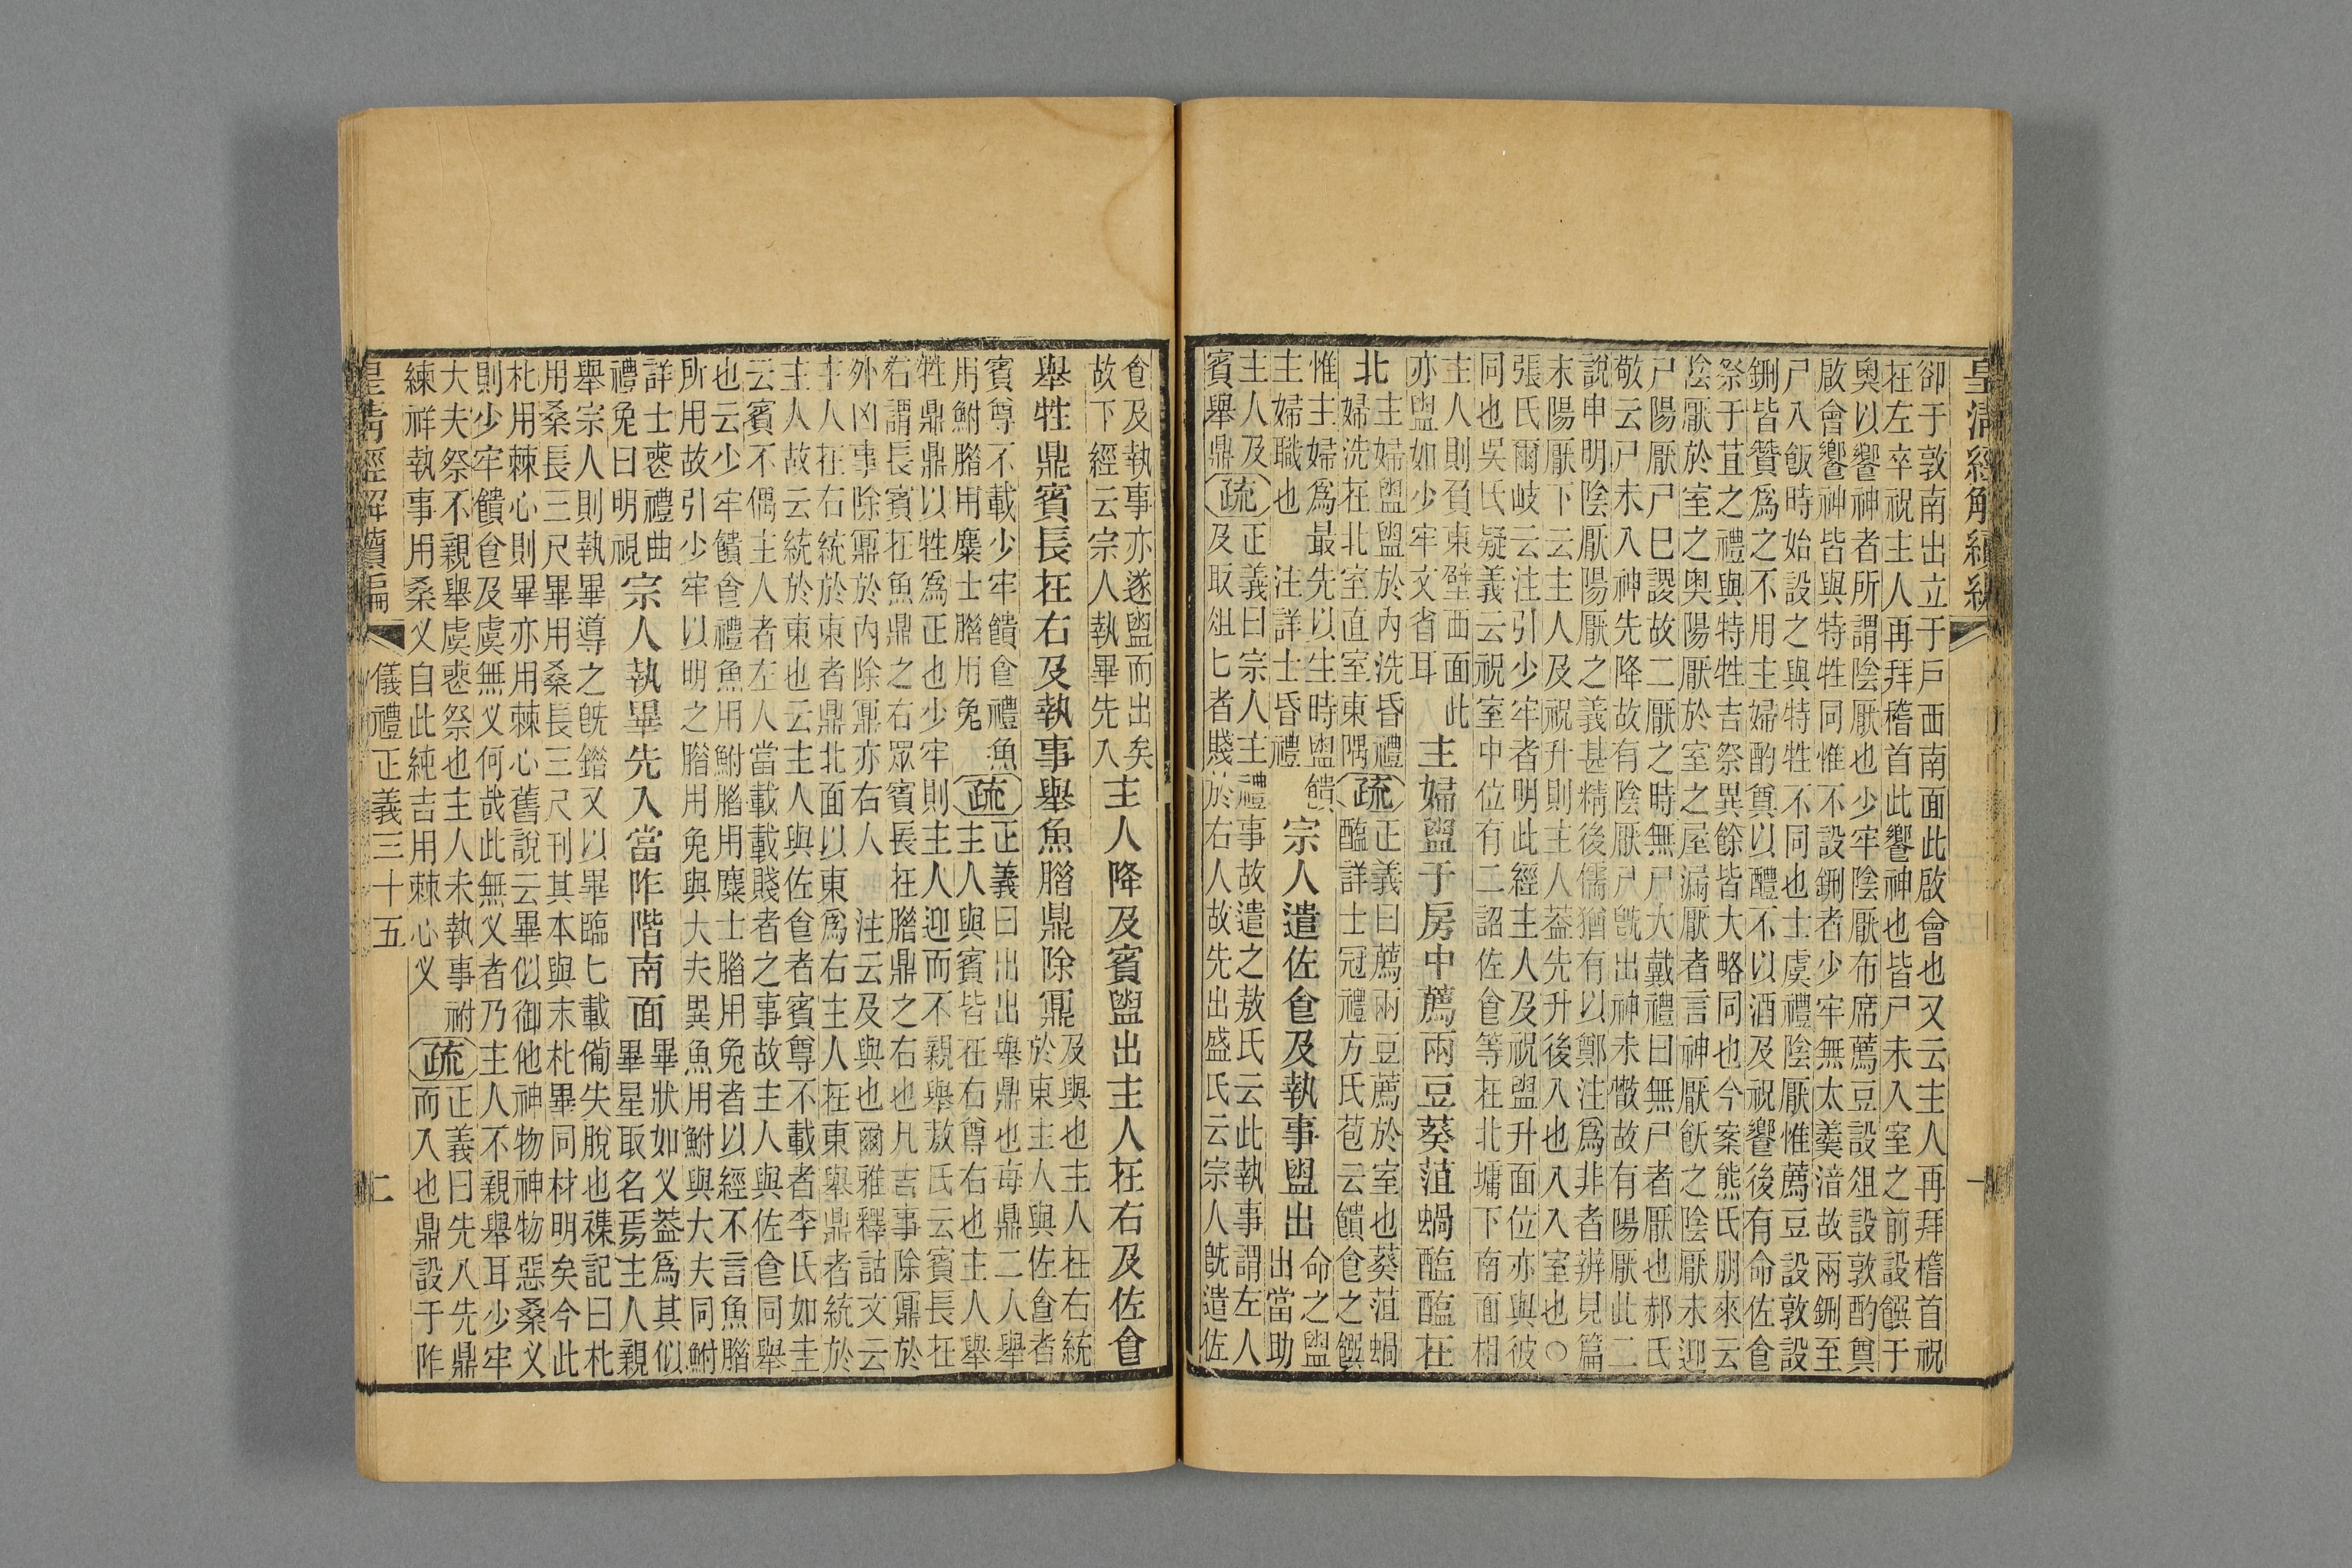 皇清經解續編
一
卻于敦南出立于戶西南面此啟會也又云主人再拜稽首祝
在左卒祝主人再拜稽首此饗神也皆尸未入室之前設饌于
奧以饗神者所謂陰厭也少牢陰厭布席薦豆設俎設敦酌奠
啟會饗神皆與特牲同惟不設鉶者少牢無太羹湆故兩鉶至
尸入飯時始設之與特牲不同也士虞禮陰厭惟薦豆設敦設
鉶皆贊爲之不用主婦酌奠以醴不以酒及祝饗後有命佐食
祭于苴之禮與特牲吉祭異餘皆大略同也今案熊氏朋來云
陰厭於室之奧陽厭於室之屋漏厭者言神厭飫之陰厭未迎
尸陽厭尸巳謖故二厭之時無尸大戴禮曰無尸者厭也郝氏
敬云尸未入神先降故有陰厭尸旣出神未憿故有陽厭此二
說申明陰厭陽厭之義甚精後儒猶有以鄭注爲非者辨見篇
末陽厭下云主人及祝升則主人葢先升後入也入入室也○
張氏爾岐云注引少牢者明此經主人及祝盥升面位亦與彼
同也吳氏疑義云祝室中位有二詔佐食等在北墉下南面相
主人則負東壁西面此
亦盥如少牢文省耳
主婦盥于房中薦兩豆葵菹蝸醢醢在
北
主婦盥盥於內洗昏禮
婦洗在北室直室東隅
疏
正義曰薦兩豆薦於室也葵菹蝸
醢詳士冠禮方氏苞云饋食之饌
惟主婦爲最先以生時盥饋
主婦職也　注詳士昏禮
宗人遣佐食及執事盥出
命之盥
出當助
主人及
賓舉鼎
疏
正義曰宗人主禮事故遣之敖氏云此執事謂左人
及取俎匕者賤於右人故先出盛氏云宗人旣遣佐
食及執事亦遂盥而出矣
故下經云宗人執畢先入
主人降及賓盥出主人在右及佐食
舉牲鼎賓長在右及執事舉魚腊鼎除鼏
及與也主人在右統
於東主人與佐食者
賓尊不載少牢饋食禮魚
用鮒腊用麋士腊用兔
疏
正義曰出出舉鼎也每鼎二人舉
主人與賓皆在右尊右也主人舉
牲鼎鼎以牲爲正也少牢則主人迎而不親舉敖氏云賓長在
右謂長賓在魚鼎之右眾賓長在腊鼎之右也凡吉事除鼏於
外凶事除鼏於內除鼏亦右人　注云及與也爾雅釋詁文云
主人在右統於東者鼎北面以東爲右主人在東舉鼎者統於
主人故云統於東也云主人與佐食者賓尊不載者李氏如圭
云賓不偶主人者左人當載載賤者之事故主人與佐食同舉
也云少牢饋食禮魚用鮒腊用麋士腊用兔者以經不言魚腊
所用故引少牢以明之腊用兔與大夫異魚用鮒與大夫同鮒
詳士喪禮曲
禮兔曰明視
宗人執畢先入當阼階南面
畢狀如叉葢爲其似
畢星取名焉主人親
舉宗人則執畢導之旣錯又以畢臨匕載備失脫也襍記曰朼
用桑長三尺畢用桑長三尺刊其本與末朼畢同材明矣今此
朼用棘心則畢亦用棘心舊說云畢似御他神物神物惡桑叉
則少牢饋食及虞無叉何哉此無叉者乃主人不親舉耳少牢
大夫祭不親舉虞喪祭也主人未執事祔
練祥執事用桑叉自此純吉用棘心叉
疏
正義曰先入先鼎
而入也鼎設于阼
皇清經解續編
儀禮正義三十五
二